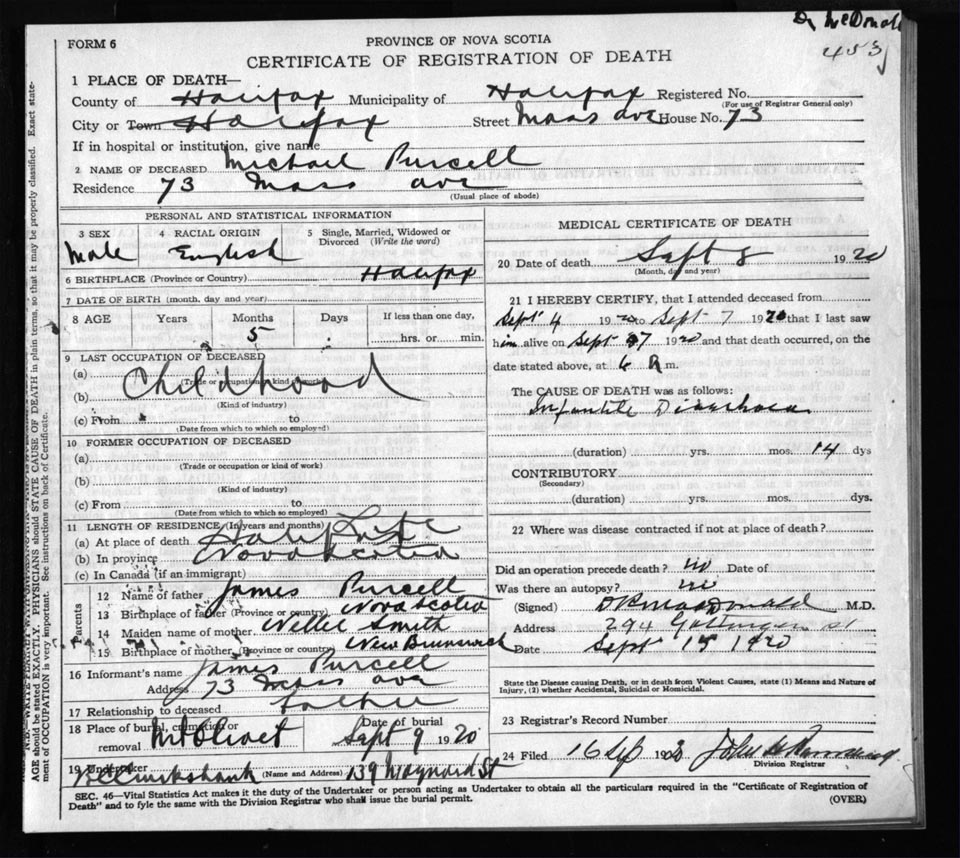 Dr McDonald
453
FORM 6
PROVINCE OF NOVA SCOTIA
CERTIFICATE OF REGISTRATION OF DEATH
1 PLACE OF DEATH—
County of Halifax Municipality of Halifax Registered No.
(For use of Registrar General only)
City or Town Halifax Street Mass ave House No. 73
If in hospital or institution, give name
2 NAME OF DECEASED Michael Purcell
Residence 73 Mass ave
(Usual place of abode)
PERSONAL AND STATISTICAL INFORMATION
3 SEX 4 RACIAL ORIGIN 5 Single, Married, Widowed or Divorced (Write the word)
Male English
6 BIRTHPLACE (Province or Country) Halifax
7 DATE OF BIRTH (month, day and year)
8 AGE Years Months Days If less than one day,
5 hrs. or min.
9 LAST OCCUPATION OF DECEASED
(a) Childhood
(Trade or occupation or kind of work)
(b)
(Kind of industry)
(c) From to
(Date from which to which so employed)
10 FORMER OCCUPATION OF DECEASED
(a)
(Trade or occupation or kind of work)
(b)
(Kind of industry)
(c) From to
(Date from which to which so employed)
11 LENGTH OF RESIDENCE (In years and months)
(a) At place of death Halifax Life
(b) In province Nova Scotia
(c) In Canada (if an immigrant)
Parents
12 Name of father James Purcell
13 Birthplace of father (Province or country) Nova Scotia
14 Maiden name of mother Nellie Smith
15 Birthplace of mother (Province or country) New Brunswick
16 Informant's name James Purcell
Address 73 Mass ave
17 Relationship to deceased father
18 Place of burial, cremation or removal Mt Olivet Date of burial Sept 9 1920
19 Undertaker Cruikshank (Name and Address) 139 Maynard St
MEDICAL CERTIFICATE OF DEATH
20 Date of death Sept 8 1920
(Month, day and year)
21 I HEREBY CERTIFY, that I attended deceased from
Sept 4 1920 to Sept 7 1920 that I last saw
him alive on Sept 7 1920 and that death occurred, on the
date stated above, at 6 a m.
The CAUSE OF DEATH was as follows:
Infantile Diarrhoea
(duration) yrs. mos. 14 dys
CONTRIBUTORY
(Secondary)
(duration) yrs. mos. dys.
22 Where was disease contracted if not at place of death?
Did an operation precede death? no Date of
Was there an autopsy? no
(Signed) MacDonald M.D.
Address 294 Gottingen st
Date Sept 15 1920
State the Disease causing Death, or in death from Violent Causes, state (1) Means and Nature of
Injury, (2) whether Accidental, Suicidal or Homicidal.
23 Registrar's Record Number
24 Filed 16 Sep 1920 John
Division Registrar
SEC. 46—Vital Statistics Act makes it the duty of the Undertaker or person acting as Undertaker to obtain all the particulars required in the "Certificate of Registration of
Death" and to fyle the same with the Division Registrar who shall issue the burial permit. (OVER)
AGE should be stated EXACTLY. PHYSICIANS should STATE CAUSE OF DEATH in plain terms, so that it may be properly classified. Exact state-
ment of OCCUPATION is very important. See instructions on back of Certificate.